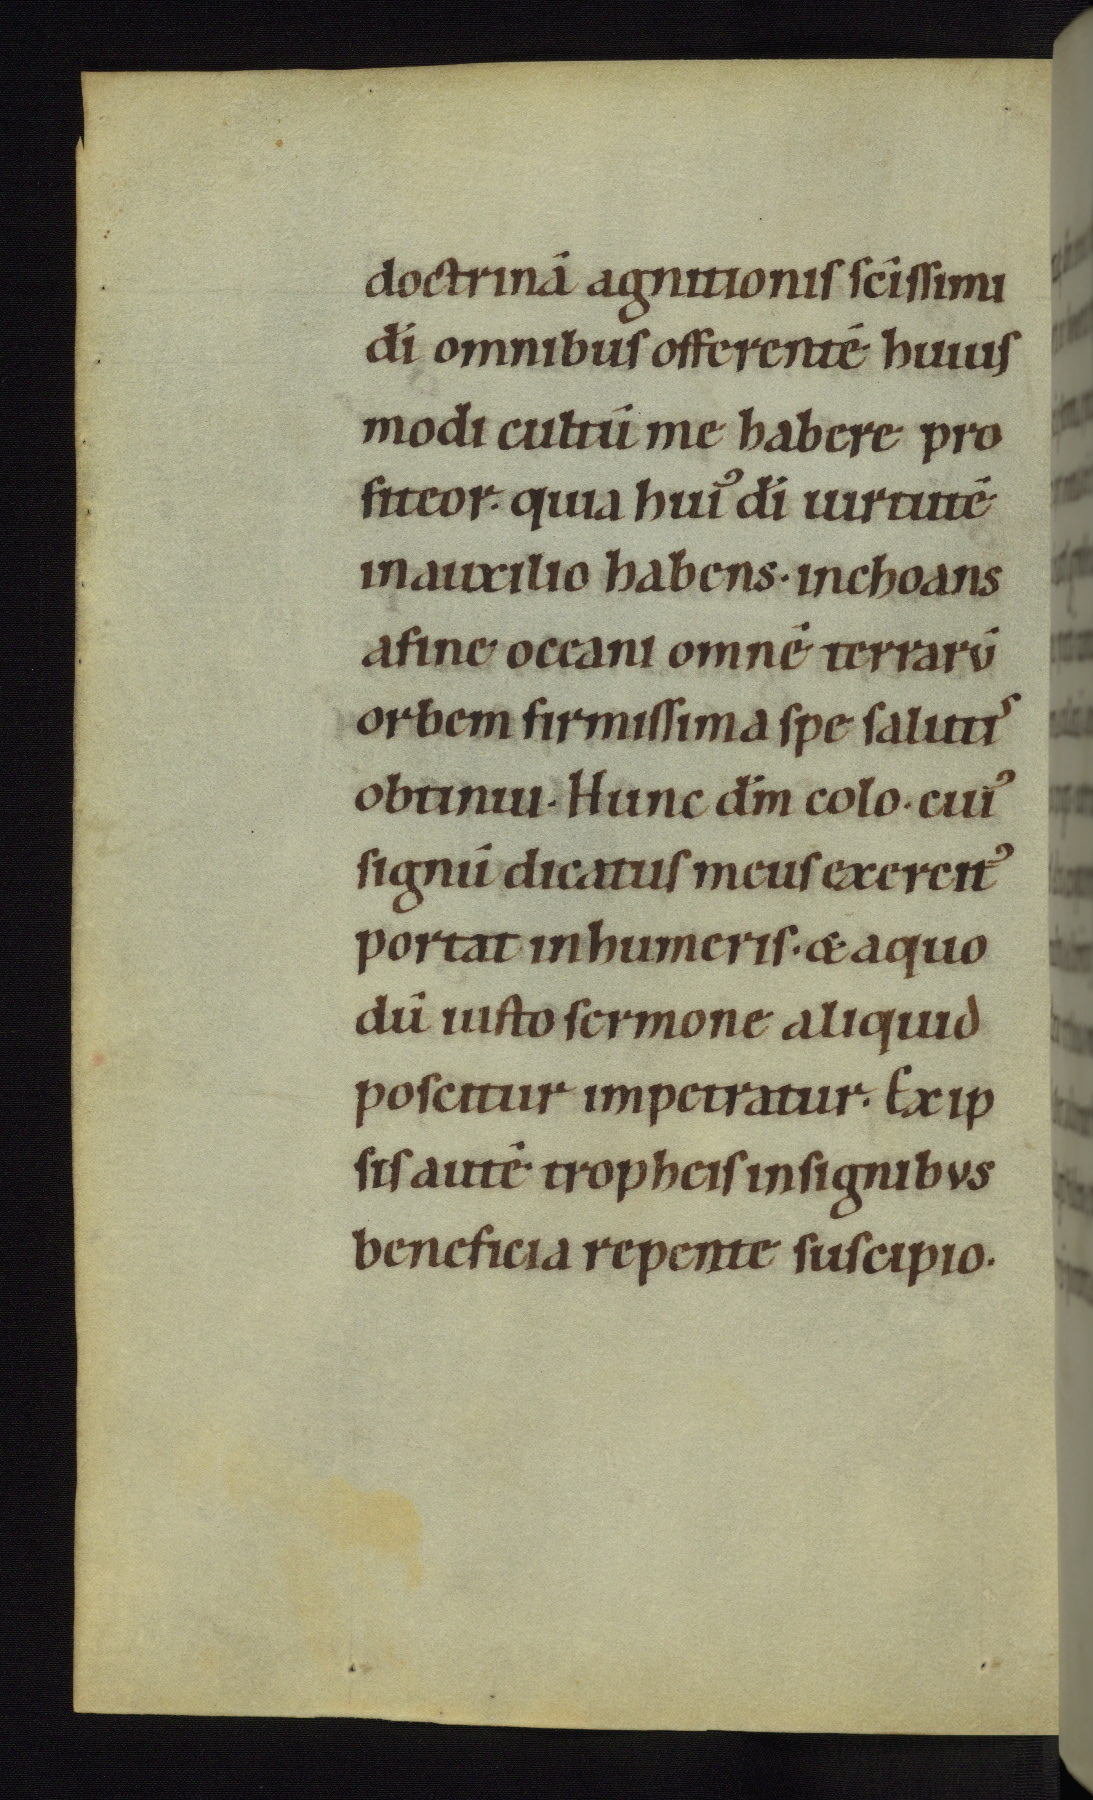 doctrinā agnitionis sc̄issimi
di̅ omnibus offerentē huius
modi cultū me habere pro
fiteor. quia huiꝰ di̅ uirtutē
in auxilio habens. inchoans
afine occani omnē terrarū
orbem firmissima spe salutis
obtinui. Hunc dm̅ colo. cuiꝰ
signū dicatus meus exercitꝰ
portat in humeris. & aquo
dū iusto sermone aliquid
poscitur impetratur. Ex ip
sis autē tropheis insignibus
beneficia repente suscipio.